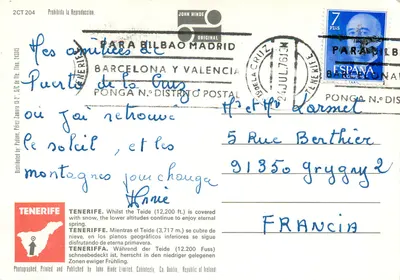 2CT 204
Prohibida la Reproducción
JOHN HINDE
ORIGINAL
PARA BILBAO MADRID
BARCELONA Y VALENCIA
PONGA N.º DISTRITO POSTAL
TENERIFE
JUL 76
7
PTAS
ESPAÑA
Mes amitiés de
Puerto de la Cruz
où j'ai retrouvé
le soleil, et les
montagnes pour changer
Annie
Mr et Mme
5 Rue Berthier
91350 Grygny 2
FRANCIA
TENERIFE
TENERIFE. Whilst the Teide (12,200 ft.) is covered
with snow, the lower altitudes continue to enjoy eternal
spring.
TENERIFE. Mientras el Teide (3,717 m.) se cubre de
nieve, en los planos geográficos inferiores se sigue
disfrutando de eterna primavera.
TENERIFFA. Während der Teide (12,200 Fuss)
schneebedeckt ist, herrscht in den niedriger gelegenen
Zonen ewiger Frühling.
Photographed, Printed and Published by John Hinde Limited, Cabinteely, Co. Dublin, Republic of Ireland